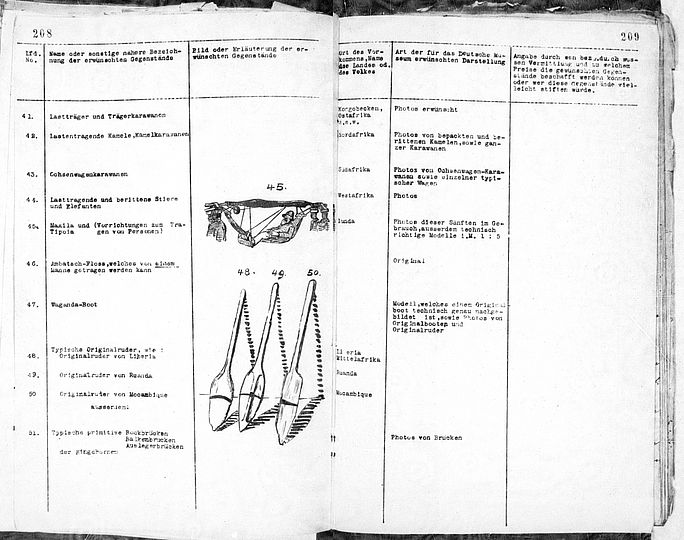 208
Lfd. No.
Name oder sonstige nähere Bezeich-
nung der erwünschten Gegenstände
Bild oder Erläuterung der er-
wünschten Gegenstände
41. Lastträger und Trägerkarawanen
42. Lastentragende Kamele, Kamelkarawanen
43. Ochsenwagenkarawanen
44. Lasttragende und berittene Stiere
und Elefanten
45. Masila und (Vorrichtungen zum Tra-
Tipoia gen von Personen)
46. Ambatsch-Floss, welches von einem
Manne getragen werden kann
47. Waganda-Boot
Typische Originalruder, wie :
48. Originalruder von Liberia
49. Originalruder von Ruanda
50 Originalruder von Mocambique
ausserdem:
51. Typische primitive Rockbrücken
Balkenbrücken
Auslegerbrücken
der Eingebornen
45.
48. 49. 50.
209
Art des Vor-
kommens, Name
des Landes od.
des Volkes
Art der für das Deutsche Mu-
seum erwünschten Darstellung
Angabe durch wen bez. durch wes-
sen Vermittlung und zu welchem
Preise die gewünschten Gegen-
stände beschafft werden können
oder wer diese Gegenstände viel-
leicht stiften würde.
Kongobecken,
Ostafrika
u.s.w.
Photos erwünscht
Nordafrika
Photos von bepackten und be-
rittenen Kamelen, sowie gan-
zer Karawanen
Südafrika
Photos von Ochsenwagen-Kara-
wanen sowie einzelner typi-
scher Wagen
Westafrika
Photos
Lunda
Photos dieser Sänften im Ge-
brauch, ausserdem technisch
richtige Modelle i.M. 1 : 5
Original
Modell, welches einen Original
boot technisch genau nachge-
bildet ist, sowie Photos von
Originalbooten und
Originalruder
Liberia
Mittelafrika
Ruanda
Mocambique
Photos von Brücken